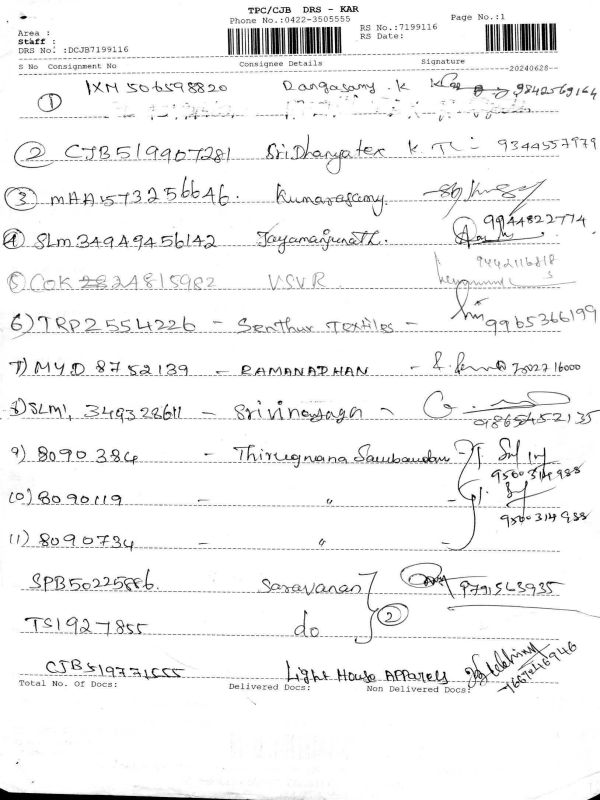 TPC/CJB DRS - KAR
Phone No.:0422-3505555 Page No.:1
Area : RS No.:7199116
Staff : RS Date:
DRS No. :DCJB7199116
S No Consignment No Consignee Details Signature
--20240628--
1 IXM 506598820 Rangasamy . K 9842569164
2 CJB519907281 Sri Dhanyatex K. TC - 9344557979
3 MAA1573256646. Kumarasamy.
4 SLM 34949456142 Jayamanjunath. 9944822774
5 COK 24815982 VSVR 9442116818
6) TRP2554226 - Senthur Textiles - 9965366199
7) MYD 8752139 - RAMANATHAN -
8) SLM1, 349328611 - Srivinayaga - 9865452135
9) 8090384 - Thirugnana Sambandam - 9500314988
10) 8090119 - " - 9500314988
11) 8090734 - " -
SPB50225886. Saravanan 9791563935
TS1927855 do 2
CJB519771555 Light House Apparels
Total No. Of Docs: Delivered Docs: Non Delivered Docs: